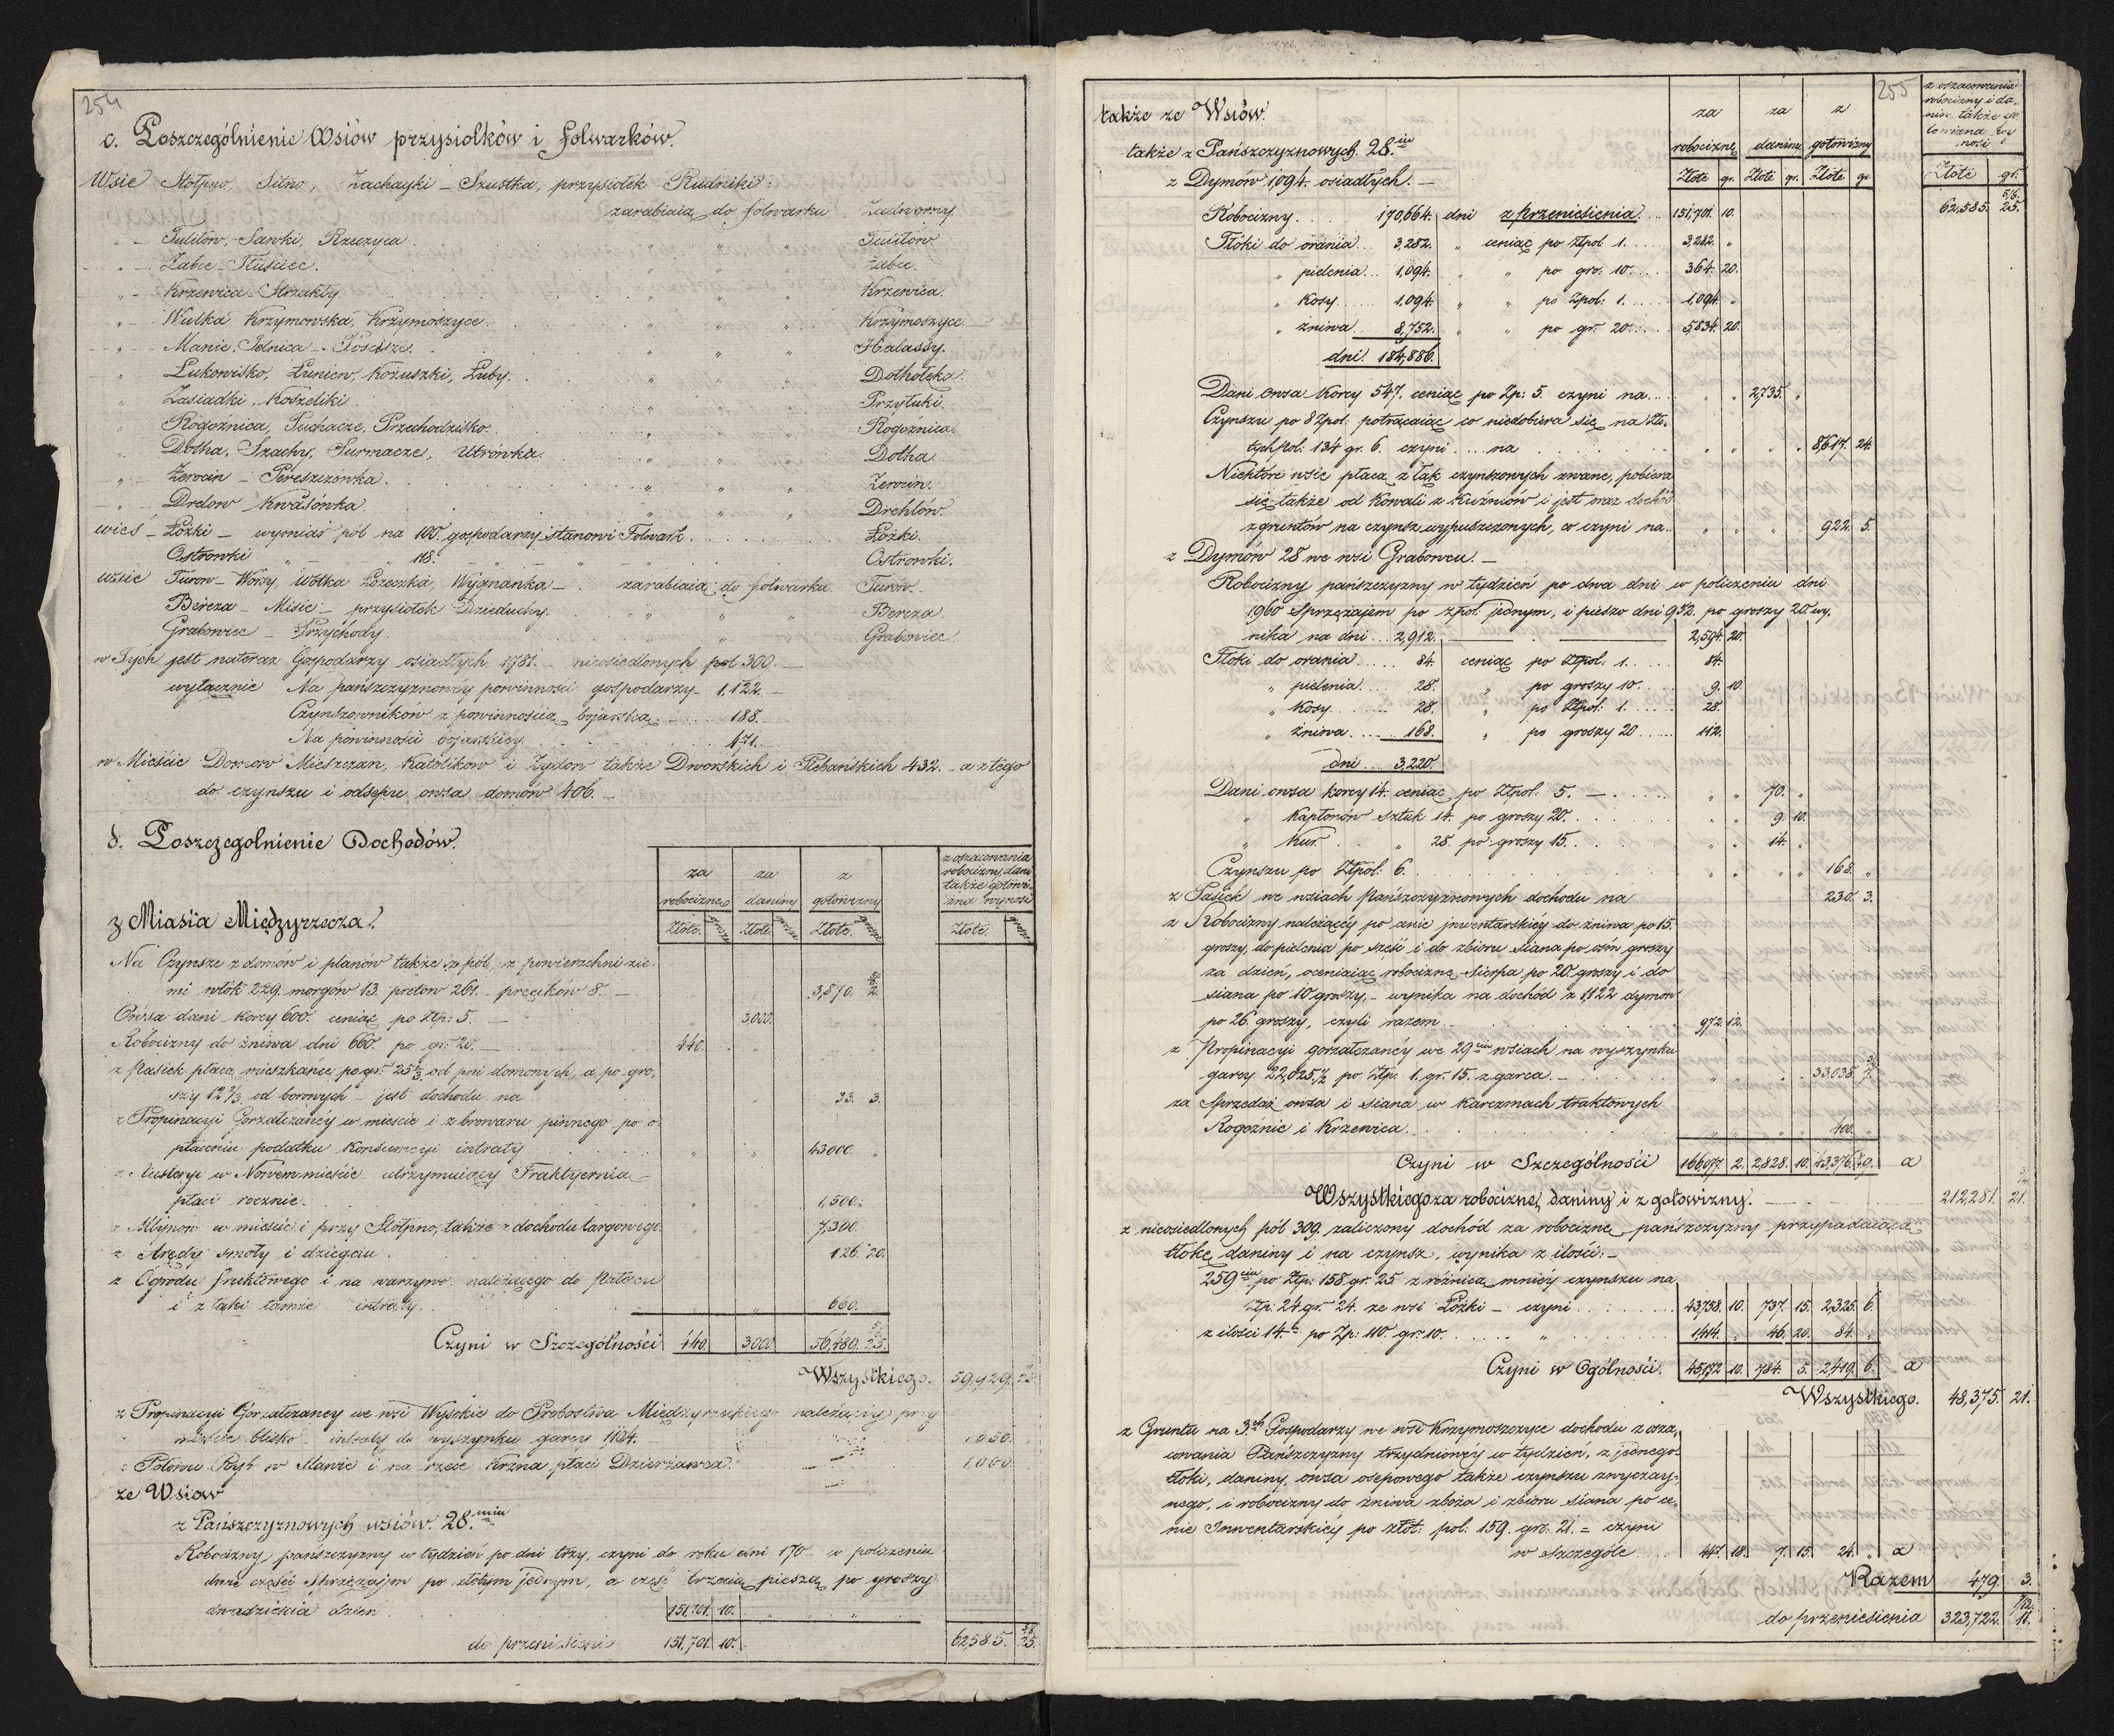 254
c. Poszczególnienie Wsiów przysiolków i folwarków.
Wsie Stołpno, Sitno, Zachayki – Szustka, przysiołek Rudniki:
zarabiaią do folwarku Zadworny
" – Tulitów, Sawki, Rzeczyca . " " " Tulitów
" – Żabce Tłuściec. " " " Żabce.
" – Krzewica – Strzakły " " " Krzewica.
" – Wulka Krzymowska, Krzymoszyce. " " " Krzymoszyce
" – Manie, Jelnica – Pościsze. " " " Halassy.
" Łukowisko, Łuniew, Kożuszki, Łuby. Dołhołęka.
" Zasiadki, Koszeliki. Przyłuki.
" Rogoznica, Puchacze, Przechodzisko. " " " Rogoznica.
" Dołha, Szachy, Surmacze, Utrówka. " " " Dołha
" – Żerocin – Pereszczówka. " " " Żerocin.
– " – Drelow Kwasówka. " " " Drehlów.
wieś – Łózki – wymiar pól na 100. gospodarzy stanowi Folwark Łózki.
Ostrowki " – 118. – " – " – " Ostrowki.
wsie Turow – Worsy, Wólka Łózecka, Wygnanka – zarabiaią do folwarku Turow.
Bereza – Misie – przysiołek Dzieduchy. " " " Bereza.
Grabowiec – Przychody. Grabowiec
w Tych jest nateraz Gospodarzy osiadłych 1781. – nieosiedlonych pol 300. –
wyłącznie Na pańszczyznowéy powinności gospodarzy – 1,122. –
Czynszowników z powinnością bojarską – 188. –
Na powinności bojarskiey 471. –
w Mieście Domow Mieszczan, Katolikow i Żydow także Dworskich i Plebańskich 432. – a z tego
do czynszu i odsepu owsa domów 406. –
d. Poszczegolnienie Dochodów.
za robociznę za daniny z gotowizny z oszacowania robocizny dani także gotowizna wynosi
z Miasta Międzyrzecza.
Złote. Złote Złote. Złote.
Na Czynsze z domow i planów także z pól, z powierzchni zie-
mi włók 229. morgów 13. prętow 261. – precików 8. – 3,870. 2.
Owsa dani – korcy 600. ceniąc po Złp: 5. – 3,000.
Robocizny do żniwa dni 660. po gr. 20. – 440.
z Pasiek płacą mieszkance po gr. 25 1/3 od pni domowych, a po gro-
szy 12 2/3 od borowych – jest dochodu na 23. 3.
z Propinacyi Gorzałczanéy w mieście i z browaru piwnego po o-
płaceniu podatku Konsumcyi intraty 43000. "
z Austeryi w Nowem mieście utrzymuiący Traktyernia –
płaci rocznie. 1,500. "
z Młynow w mieście i przy Stołpno, także z dochodu targowego. 7,300.
z Arędy smoły i dziegciu . 126. 20.
z Ogrodu fruktowego i na warzywo należącego do Pałacu
i z łąki tamże intraty. 660.
Czyni w Szczególności 440. 3000 56,480. 25.
Wszystkiego. 59,929. 25
z Propinacyi Gorzałczaney we wsi Wysokie do Probostwa Międzyrzeckiego należącéy przy
mieście blisko intraty do wyszynku garcy 1104.
z Połowu Ryb w Stawie i na rzece Krzna płaci Dzierżawca. – 1,000.
ze Wsiow
z Pańszczyznowych wsiów. 28.miu
Robocizny pańszczyzny w tydzień po dni trzy, czyni do roku dni 170 – w policzeniu
dwie części sprzężajm po złotym jednym, a część trzecia pieszą po groszy
dwadzieścia dzien . 151,701. 10.
do przeniesienia 151,701. 10. 62,585. 25.
255
także ze Wsiów.
za robociznę za daninę z gotowizny z oszacowania robocizny i danin także gotowizna wynosi
także z Pańszczyznowych. 28.iu
z Dymów 1,094. osiadłych. –
Złote gr. Złote gr. Złote gr Złote gr.
Robocizny . . . 170664. dni z przeniesienia . . . 151,701. 10. 62,585. 25. 5/6
Tłóki do orania . . . 3,282. " ceniąc po Złpol 1. . . . . 3,282. "
" pielenia . . . 1,094. " " po gro. 10. . . . 364. 20.
" Kosy . . . . 1,094. " " po Złpol: 1. . . . . 1,094. "
" żniwa . . . 8,752. " " po gr. 20. . . . . 5834. 20.
dni. 184,886.
Dani owsa Korcy 547. ceniąc po Złp: 5. czyni na . . . " " 2,735. "
Czynszu po 8 Złpol: potrącaiąc co niedobiera się na Zło-
tych Pol: 134 gr. 6. czyni . . . na " " " " 8,617. 24.
Niektóre wsie płacą z łąk czynszowych zwane, pobiera
się także od Kowali z Kuźniów i jest oraz dochód
z gruntów na czynsz wypuszczonych, co czyni na . . " " " " 922. 5.
z Dymów 28 we wsi Grabowcu. –
Robocizny pańszczyzny w tydzień po dwa dni w policzeniu dni
1960 Sprzężajem po złpol. jednym, i pieszo dni 952. po groszy 20. wy-
nika na dni . . . 2,912. 2,594. 20.
Tłoki do orania . . . . 84. ceniąc po Złpol: 1. . . . . 84.
" pielenia . . . 28. " po groszy 10. . . . . 9. 10
" Kosy . . . . . 28. " po Złpol: 1. . . . . 28.
" żniwa . . . . 168. " po groszy 20 . . . . 112.
dni . . . 3,220.
Dani owsa korcy 14. ceniąc po Złpol: 5. – . . . . " " 70. "
" Kapłonów sztuk 14. po groszy 20. . . " " 9. 10.
" Kur. . . " 28. po groszy 15. . . " " 14. "
Czynszu po Złpol: 6. " " " " 168. "
z Pasiek we wsiach pańszczyznowych dochodu na 230. 3.
z Robocizny należącéy po cenie inwentarskiéy do żniwa po 15.
groszy, do pielenia po sześć i do zbioru siana po ośm groszy
za dzień, oceniaiąc robociznę sierpa po 20 groszy i do
siana po 10 groszy, – wynika na dochód z 1122 dymow
po 26 groszy, czyli razem 972 12.
z Propinacyi gorzałczanéy we 29ciu wsiach na wyszynku
garcy 22,025 1/2 po Złp. 1. gr. 15. z garca. – 33,038.
za Sprzedaż owsa i siana w Karczmach traktowych
Rogoznic i Krzewica. 400.
Czyni w Szczególności 166077. 2. 2,828. 10. 43,376. 9. a
Wszystkiego za robociznę, daniny i z gotowizny. – 212,281. 21.
z nieosiedlonych pól 309. zaliczony dochód za robociznę pańszczyzny przypadaiącą
tłokę, daniny i na czynsz, wynika z ilości: –
259ciu po Złp: 158 gr. 25 z różnicą mniéy czynszu na
Złp. 24 gr. 24. ze wsi Łózki – czyni . . . . . 43,758. 10. 737. 15. 2,325. 6.
z ilości 14. po Zp: 110. gr. 10. . . . . " 1,414. " 46. 20. 84. "
Czyni w Ogólności. 45,172 10. 784. 5. 2419. 6. a
Wszystkiego. 48,375. 21.
z Gruntu na 3.ch Gospodarzy we wsi Krzymoszczyce dochodu z osza-
cowania Pańszczyzny trzydniowéy w tydzień, z jednego
tłoki, daniny, owsa osepowego także czynszu zwyczay-
nego, i robocizny do żniwa zboża i zbioru siana po ce-
nie Inwentarskiéy po złot: pol: 159. gro: 21. = czyni
w szczególe 447. 18. 7. 15. 24. " a
Razem 479. 3.
do przeniesienia 323,722. 11. 7/12